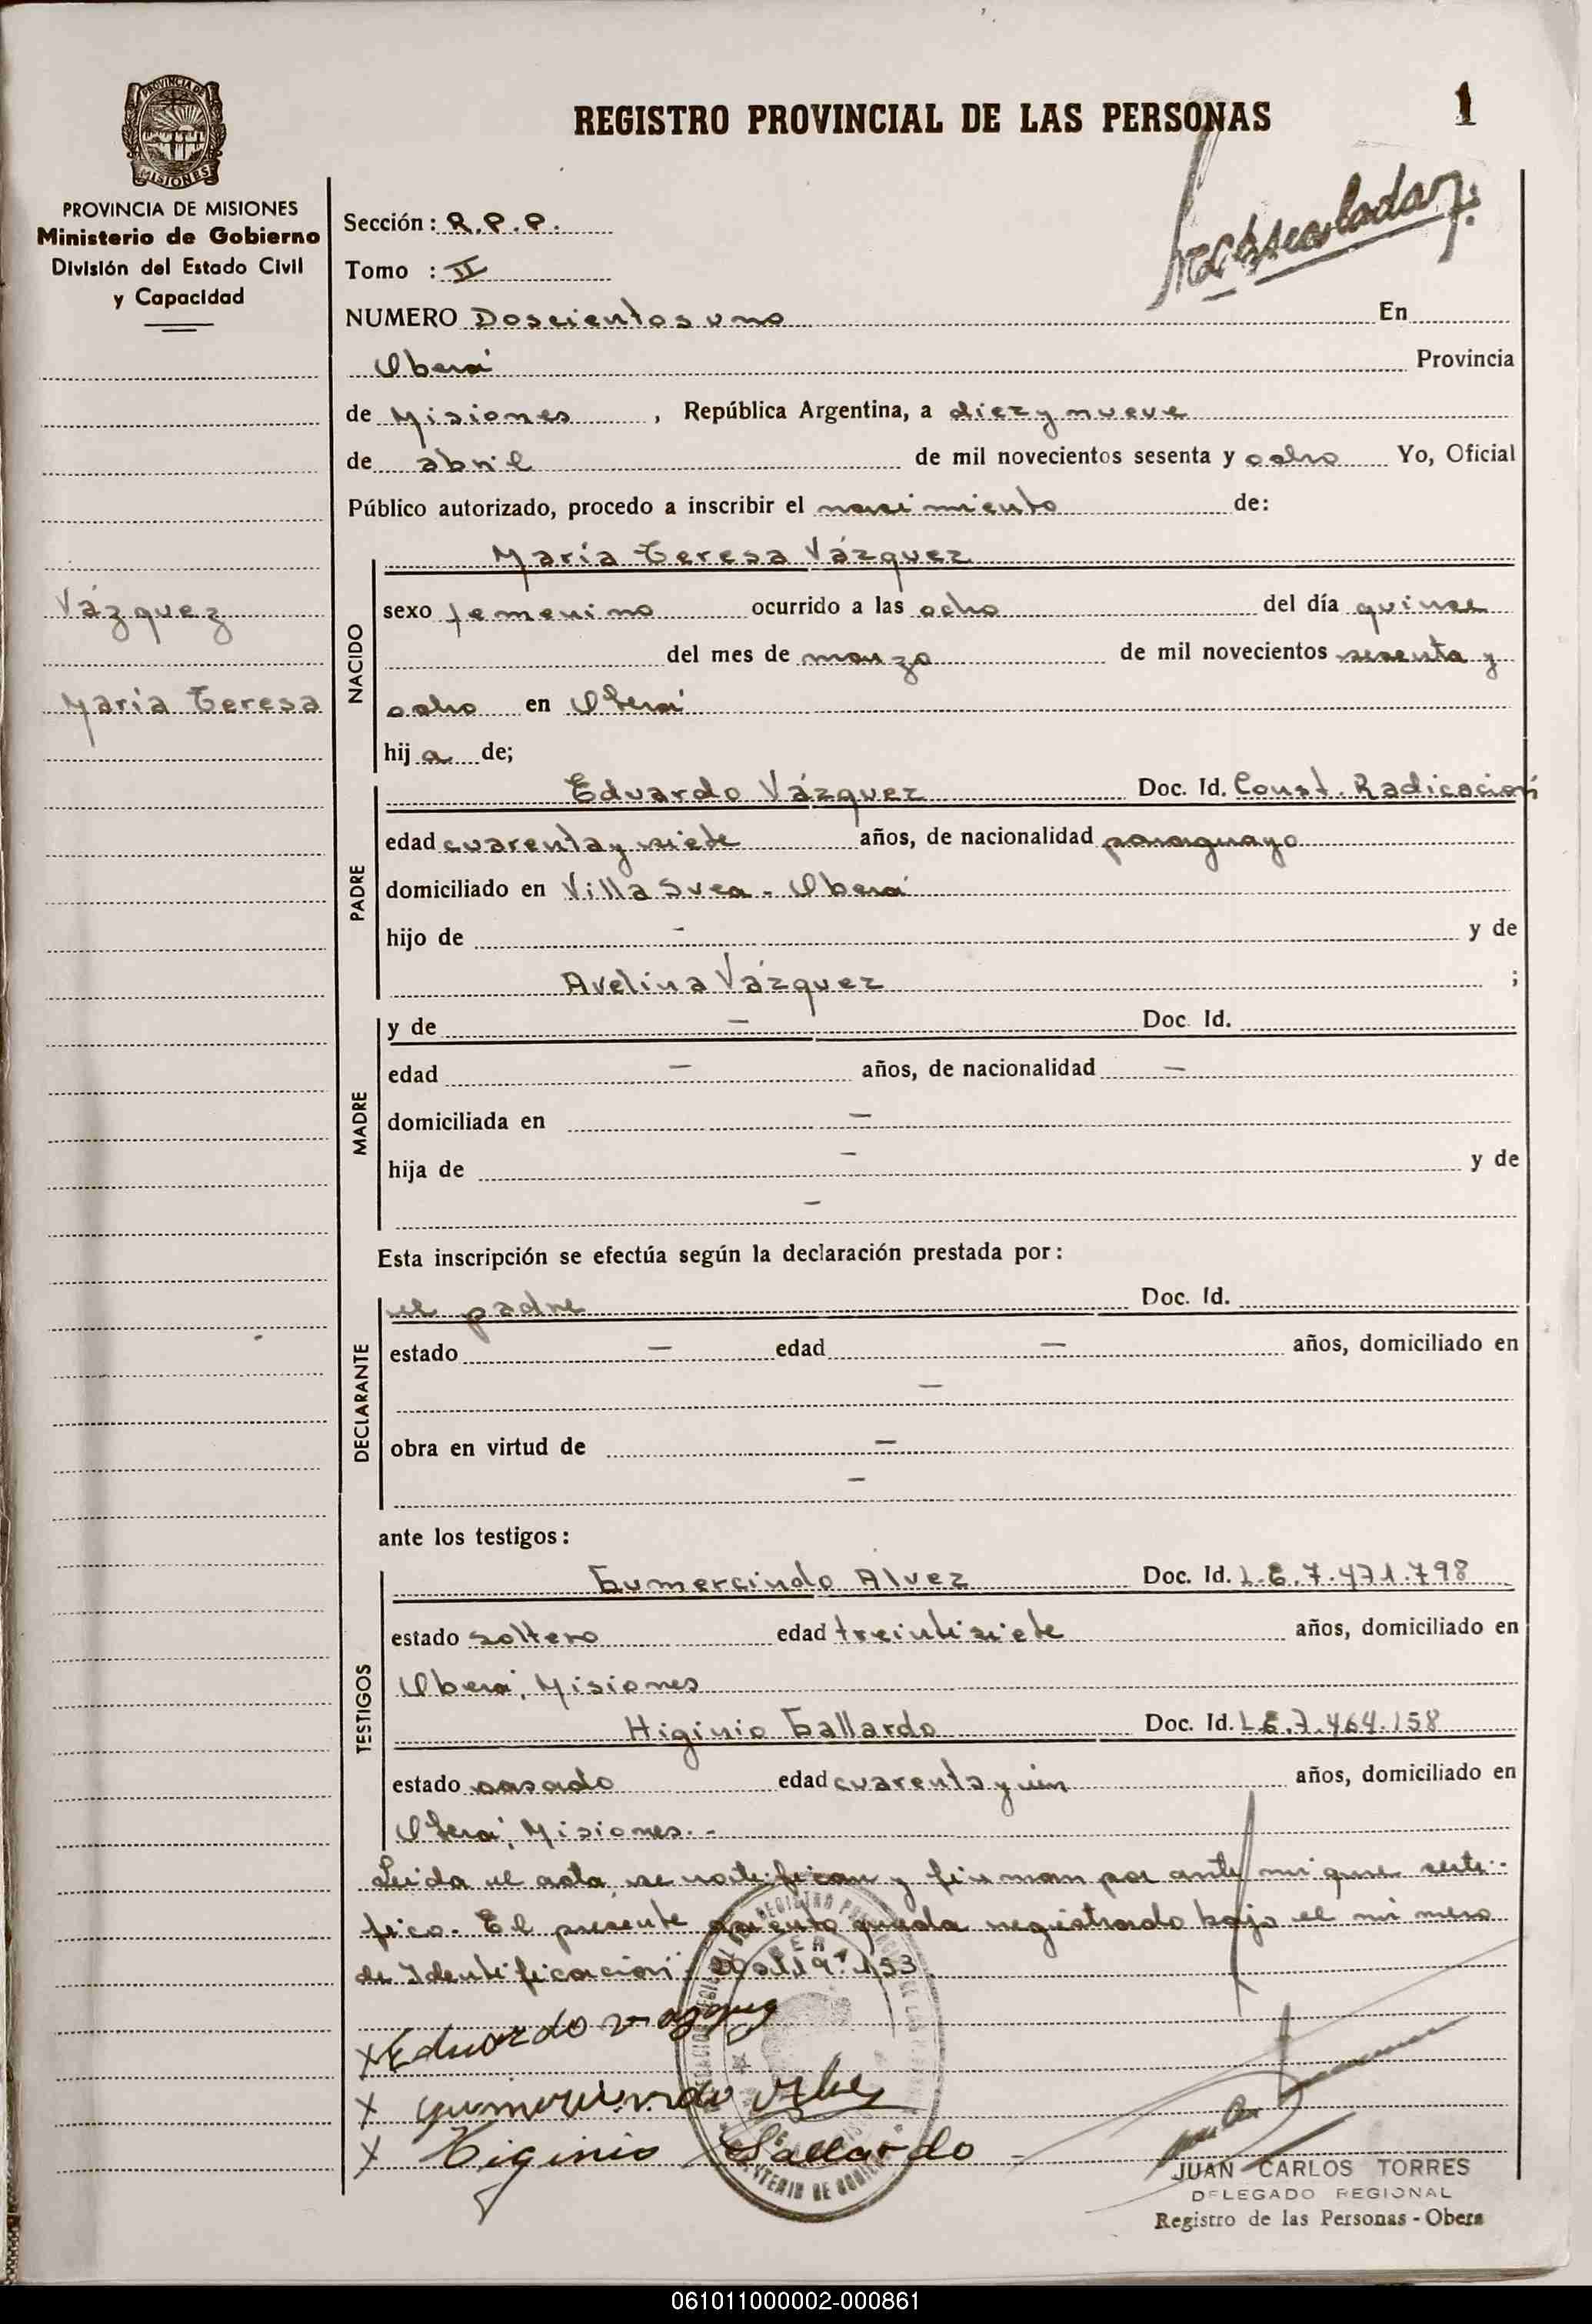 REGISTRO PROVINCIAL DE LAS PERSONAS
1
PROVINCIA DE
MISIONES
PROVINCIA DE MISIONES
Ministerio de Gobierno
División del Estado Civil
y Capacidad
Vázquez
María Teresa
Sección: R.P.P.
Tomo : II
NUMERO Doscientos uno En
Oberá Provincia
de Misiones , República Argentina, a diez y nueve
de abril de mil novecientos sesenta y ocho Yo, Oficial
Público autorizado, procedo a inscribir el nacimiento de:
María Teresa Vázquez
NACIDO
sexo femenino ocurrido a las ocho del día quince
del mes de marzo de mil novecientos sesenta y
ocho en Oberá
hija de;
PADRE
Eduardo Vázquez Doc. Id. Const. Radicación
edad cuarenta y siete años, de nacionalidad paraguayo
domiciliado en Villa Svea - Oberá
hijo de - y de
Avelina Vázquez ;
MADRE
y de — Doc. Id.
edad — años, de nacionalidad —
domiciliada en —
hija de — y de
—
Esta inscripción se efectúa según la declaración prestada por:
DECLARANTE
el padre Doc. Id.
estado — edad — años, domiciliado en
—
obra en virtud de —
—
ante los testigos:
TESTIGOS
Gumercindo Alvez Doc. Id. L.E.7.471.798
estado soltero edad treintisiete años, domiciliado en
Oberá, Misiones
Higinio Gallardo Doc. Id. L.E.7.464.158
estado casado edad cuarenta y un años, domiciliado en
Oberá, Misiones.-
Leida el acta, se notifican y firman por ante mi que certi-
fico. El presente asiento queda registrado bajo el número
de Identificación:
x Eduardo Vazquez
x Gumercindo
x Higinio Gallardo
JUAN CARLOS TORRES
DELEGADO REGIONAL
Registro de las Personas - Obera
061011000002-000861